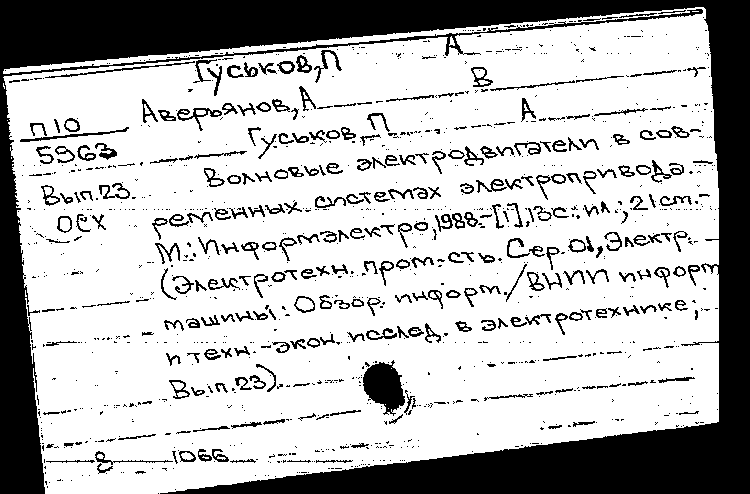 Гуськов, П А
Аверьянов, А В
П10
5963
Вып.23.
ОСХ
Гуськов, П А
Волновые электродвигатели в сов-
ременных системах электропривода.-
М.: Информэлектро, 1988.-[1],13с.: ил.; 21 см.-
(Электротехн. пром-сть. Сер. 01, Электр.
машины: Обзор. информ. / ВНИИ информ
и техн.-экон. исслед. в электротехнике;
Вып.23).
8 1066